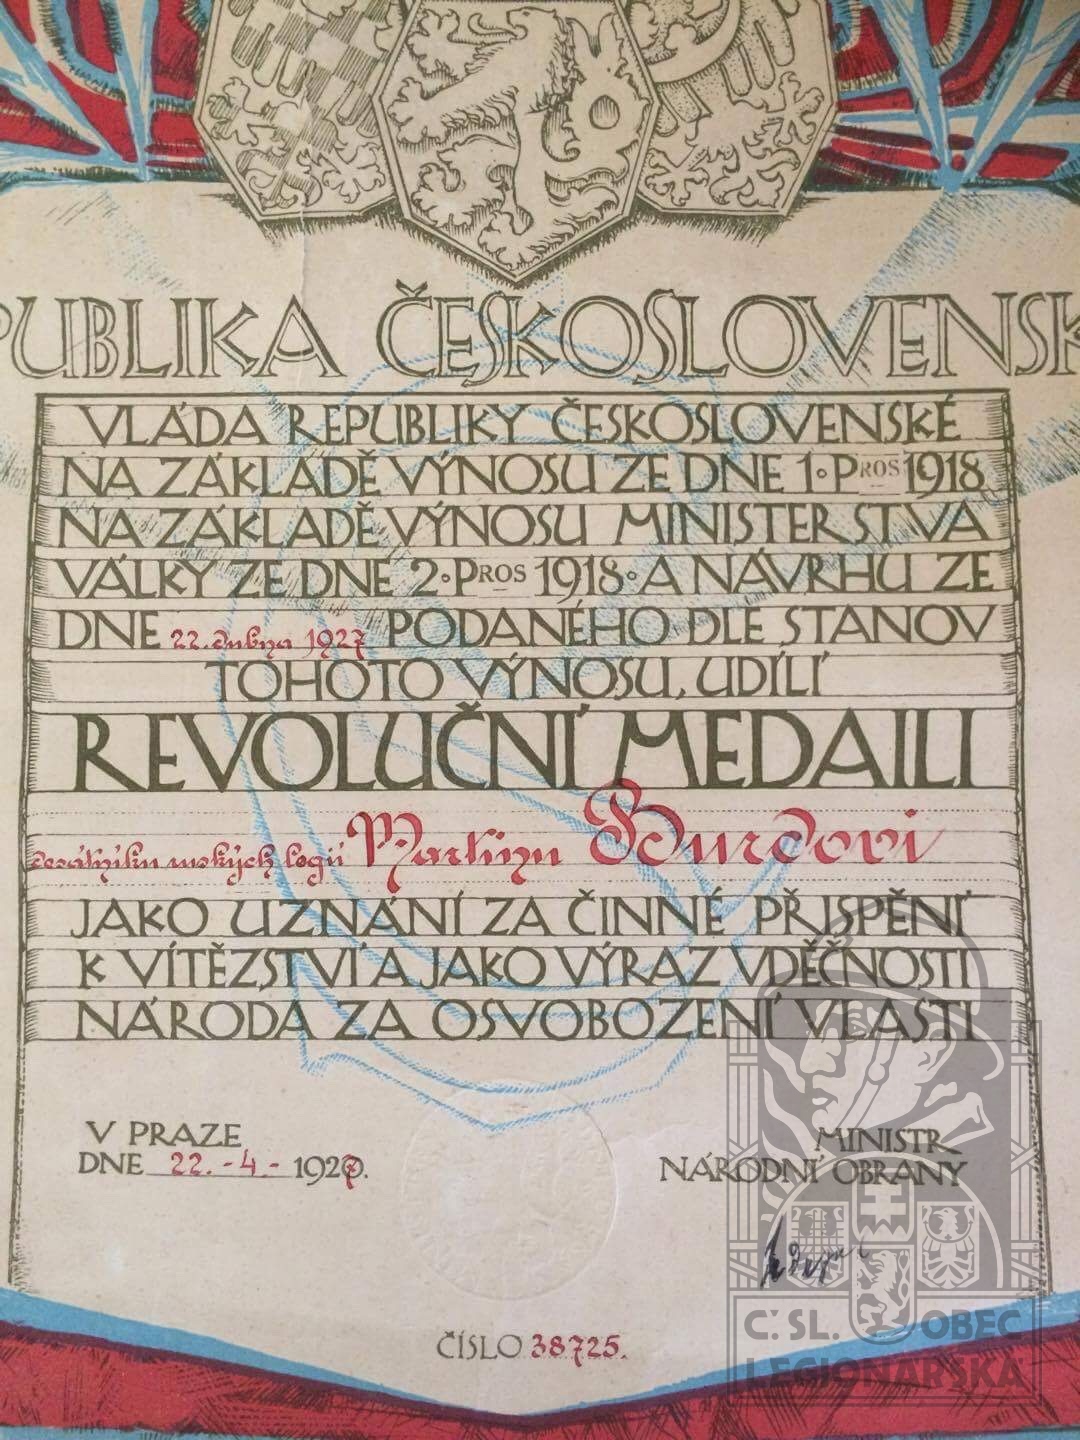 PUBLIKA ČESKOSLOVENSK
VLÁDA REPUBLIKY ČESKOSLOVENSKÉ
NA ZÁKLADĚ VÝNOSU ZE DNE 1. PROS 1918
NA ZÁKLADĚ VÝNOSU MINISTERSTVA
VÁLKY ZE DNE 2. PROS 1918. A NÁVRHU ZE
DNE 22. dubna 1927 PODANÉHO DLE STANOV
TOHOTO VÝNOSU, UDÍLÍ
REVOLUČNÍ MEDAILI
desátníku ruských legií Martinu Burdovi
JAKO UZNÁNÍ ZA ČINNÉ PŘISPĚNÍ
K VÍTĚZSTVÍ A JAKO VÝRAZ VDĚČNOSTI
NÁRODA ZA OSVOBOZENÍ VLASTI
V PRAZE
DNE 22.-4.- 1927.
MINISTR
NÁRODNÍ OBRANY
ČÍSLO 38725.
Č.SL. OBEC
LEGIONÁŘSKÁ